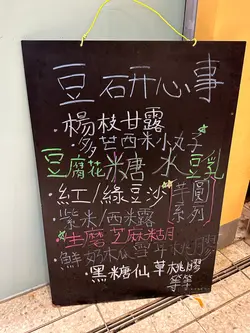 豆研心事
·楊枝甘露
·多芒西米小丸子
豆腐花 糖水 豆乳
·紅/綠豆沙 芋圓系列
·紫米/西米露
·生磨芝麻糊
·鮮奶 桃膠
·黑糖仙草桃膠 等等